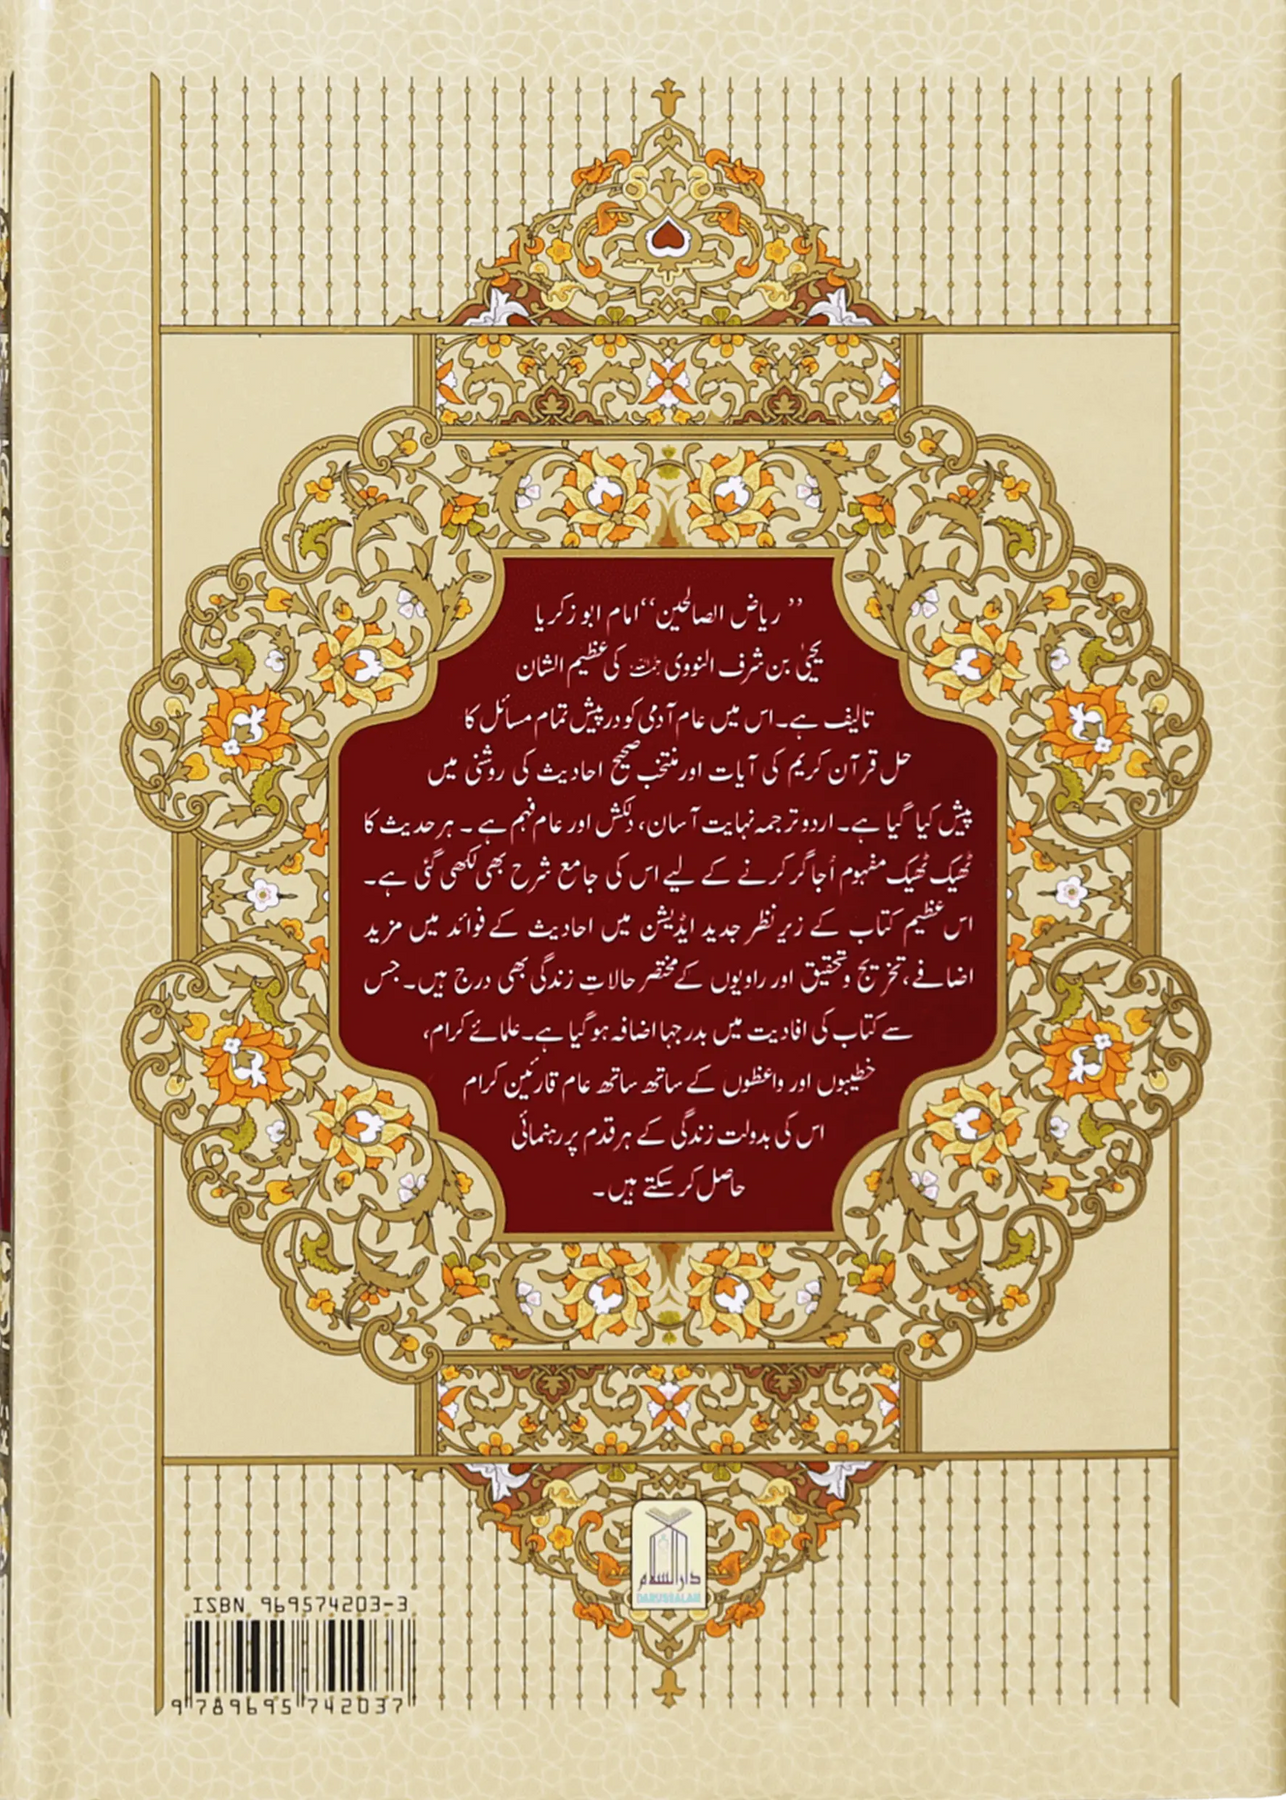 ”ریاض الصالحین“ امام ابو زکریا
یحییٰ بن شرف النووی رحمہ اللہ کی عظیم الشان
تالیف ہے۔ اس میں عام آدمی کو درپیش تمام مسائل کا
حل قرآن کریم کی آیات اور منتخب صحیح احادیث کی روشنی میں
پیش کیا گیا ہے۔ اردو ترجمہ نہایت آسان، دلکش اور عام فہم ہے۔ ہر حدیث کا
ٹھیک ٹھیک مفہوم اُجاگر کرنے کے لیے اس کی جامع شرح بھی لکھی گئی ہے۔
اس عظیم کتاب کے زیرِ نظر جدید ایڈیشن میں احادیث کے فوائد میں مزید
اضافے، تخریج و تحقیق اور راویوں کے مختصر حالاتِ زندگی بھی درج ہیں۔ جس
سے کتاب کی افادیت میں بدرجہا اضافہ ہو گیا ہے۔ علمائے کرام،
خطیبوں اور واعظوں کے ساتھ ساتھ عام قارئین کرام
اس کی بدولت زندگی کے ہر قدم پر رہنمائی
حاصل کر سکتے ہیں۔
دارالسلام
DARUSSALAM
ISBN 969574203-3
9 789695 742037